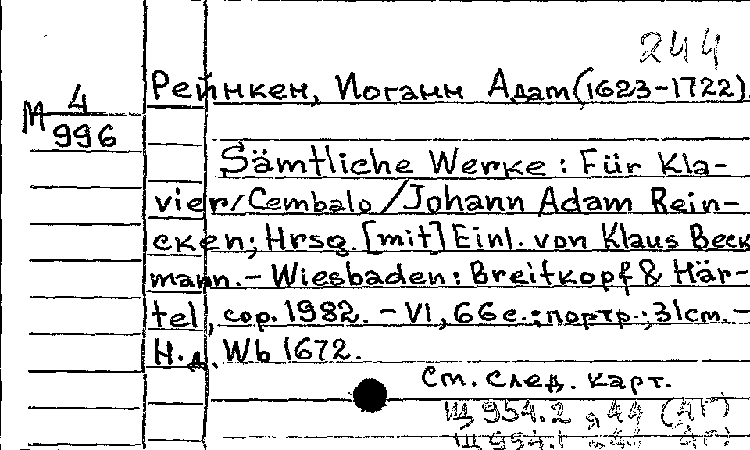 244
Рейнкен, Иоганн Адам (1623-1722).
М 4
996
Sämtliche Werke : Für Kla-
vier/Cembalo / Johann Adam Rein-
cken; Hrsg. [mit] Einl. von Klaus Beck
mann. - Wiesbaden : Breitkopf & Här-
tel, cop. 1982. - VI, 66 с. : портр.; 31 cm. -
Н.д. Wb 1672.
См. след. карт.
Щ 954.2 я 44 (АГ)